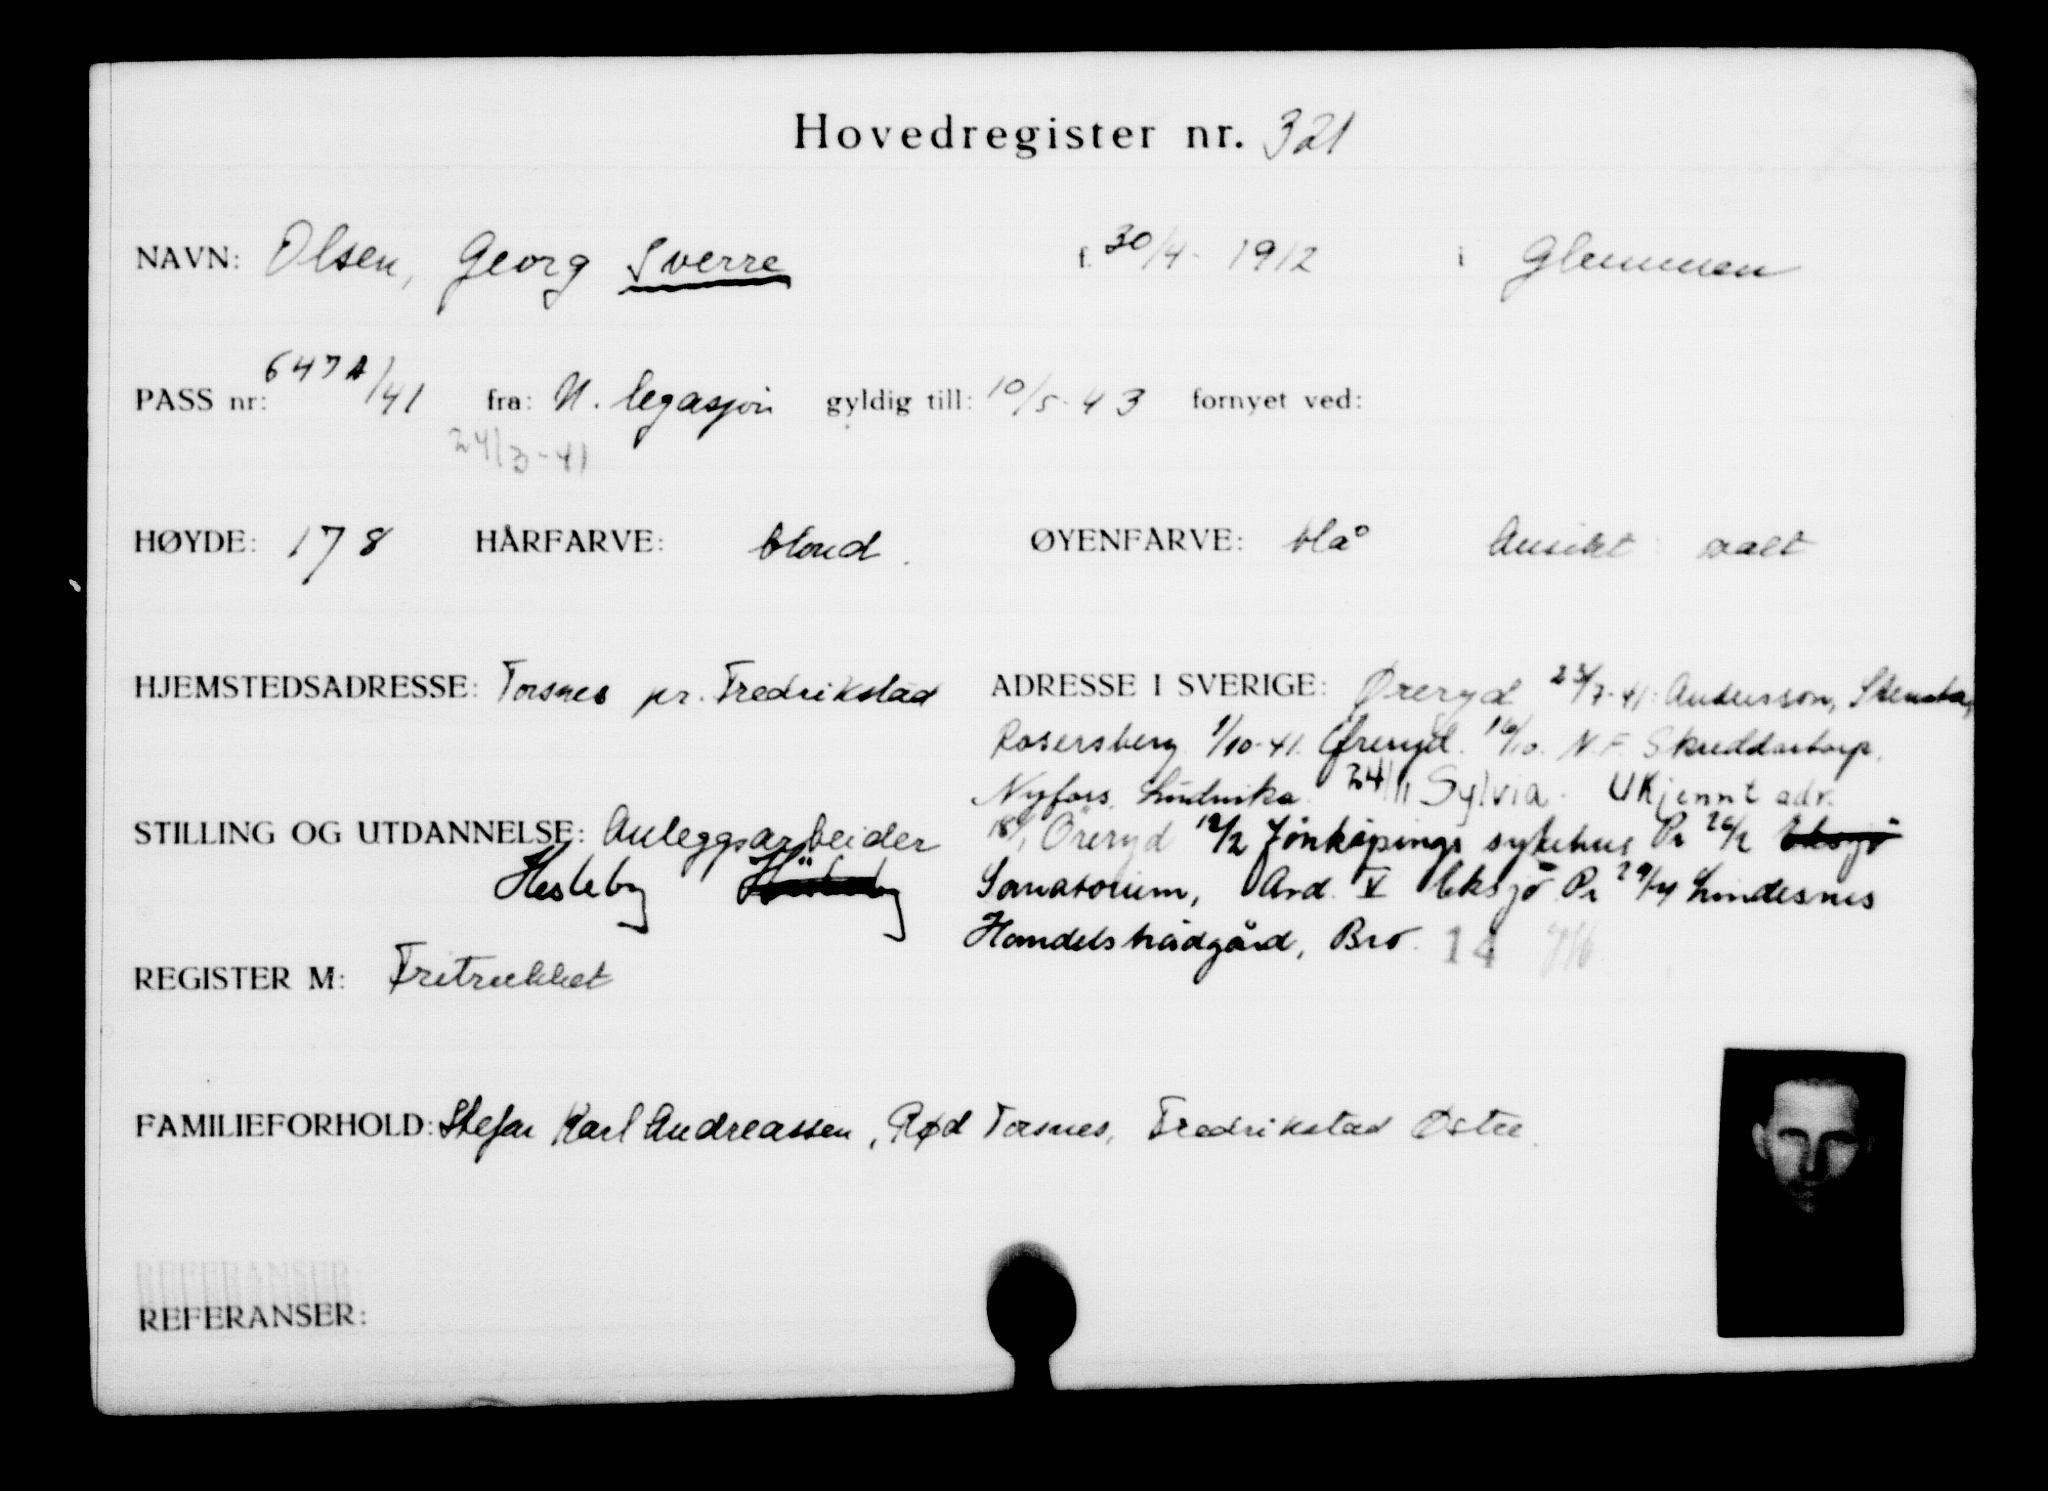 Hovedregister nr. 321
NAVN: Olsen, Georg Sverre f. 30/4-1912 i Glemmen
PASS nr: 647A/41 fra: N. legasjon gyldig till: 10/5-43 fornyet ved:
24/3-41
HØYDE: 178 HÅRFARVE: blond. ØYENFARVE: blå Ansikt: ovalt
HJEMSTEDSADRESSE: Torsnes pr. Fredrikstad
ADRESSE I SVERIGE: Øreryd 23/7-41: Andersson, Stensta,
Rosersberg 1/10-41. Øreryd. 16/10. N.F. Skuddartorp,
Nyfors, Ludvika. 24/11 Sylvia. Ukjennt adr.
18/1 Öreryd 12/2 Jönköpings sykehus Pr 26/2 Eksjö
Sanatorium, Avd. V Eksjö Pr 29/4 Lindesnes
Handelsträdgård, Bro. 14
STILLING OG UTDANNELSE: Anleggsarbeider
Hesteby
REGISTER M: Fritrukket
FAMILIEFORHOLD: Stefar Karl Andreassen, Rød Torsnes, Fredrikstad Østre.
REFERANSER
REFERANSER: